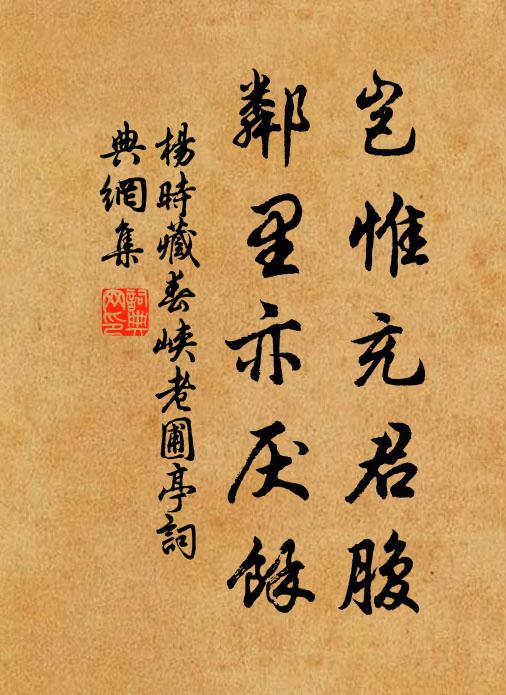 豈惟充君腹
鄰里亦厭餘
楊時藏春峽老圃亭詞
典網集
詞典網印